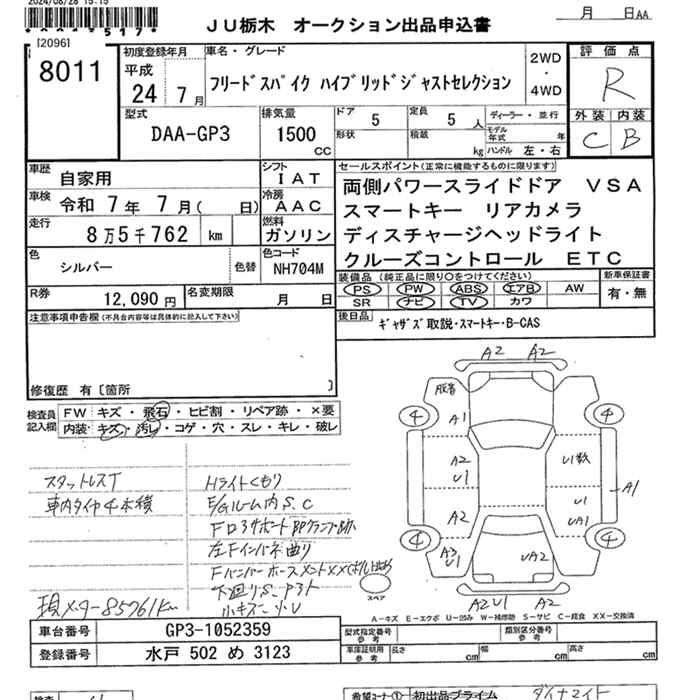 2024/08/28 15:15
月 日AA
JU栃木 オークション出品申込書
[2096]
8011
初度登録年月
平成
24年 7月
車名・グレード
フリードスパイク ハイブリッドジャストセレクション
2WD
・
4WD
評価点
R
型式
DAA-GP3
排気量
1500 cc
ドア 5
定員 5人
形状
積載 kg
ディーラー・並行
モデル年式 年
ハンドル 左・右
外装 内装
C B
車歴 自家用
シフト IAT
車検 令和 7年 7月( 日)
冷房 AAC
走行 8万5千762 km
燃料 ガソリン
色 シルバー
色替
色コード NH704M
R券 12,090円
名変期限 月 日
セールスポイント(正常に機能するものに限ります)
両側パワースライドドア VSA
スマートキー リアカメラ
ディスチャージヘッドライト
クルーズコントロール ETC
装備品 (純正品に限り○をつけてください)
PS PW ABS エアB AW
SR ナビ TV カワ
新車保証書
有・無
後日品 ギャザズ取説・スマートキー・B-CAS
注意事項申告欄(不具合内容等は具体的に記入して下さい)
修復歴 有〔箇所 〕
検査員記入欄
FW キズ・飛石・ヒビ割・リペア跡・×要
内装・キズ・汚レ・コゲ・穴・スレ・キレ・破レ
スタットレスT
車内タイヤ4本積
現メター85761Km
Hライトくもり
E/Gルーム内S.C
左Fインパネ曲り
下廻りS.
小キズ・小U
A2 A2
A1
4 4
A2
U1
U1数
U1
A1
A2
UA1
4 4
A3
U1
UA2
A2U1 A2
スペア
A-キズ E-エクボ U-凹み W-補修跡 S-サビ C-腐食 XX-交換済
車台番号 GP3-1052359
登録番号 水戸 502 め 3123
型式指定番号 参考
類別区分番号 参考
車庫証明用 参考
長さ cm
幅 cm
高さ cm
希望コーナー ① 初出品プライム
ダイナマイト